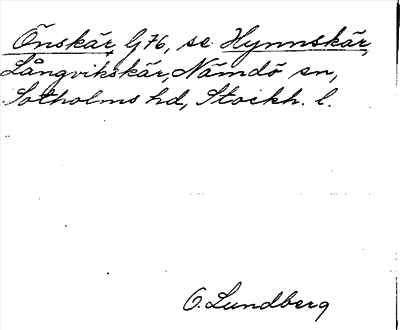 Önskär, G76, se Hynnskär,
Långvikskär, Nämdö sn,
Sotholms hd, Stockh. l.
O. Lundberg